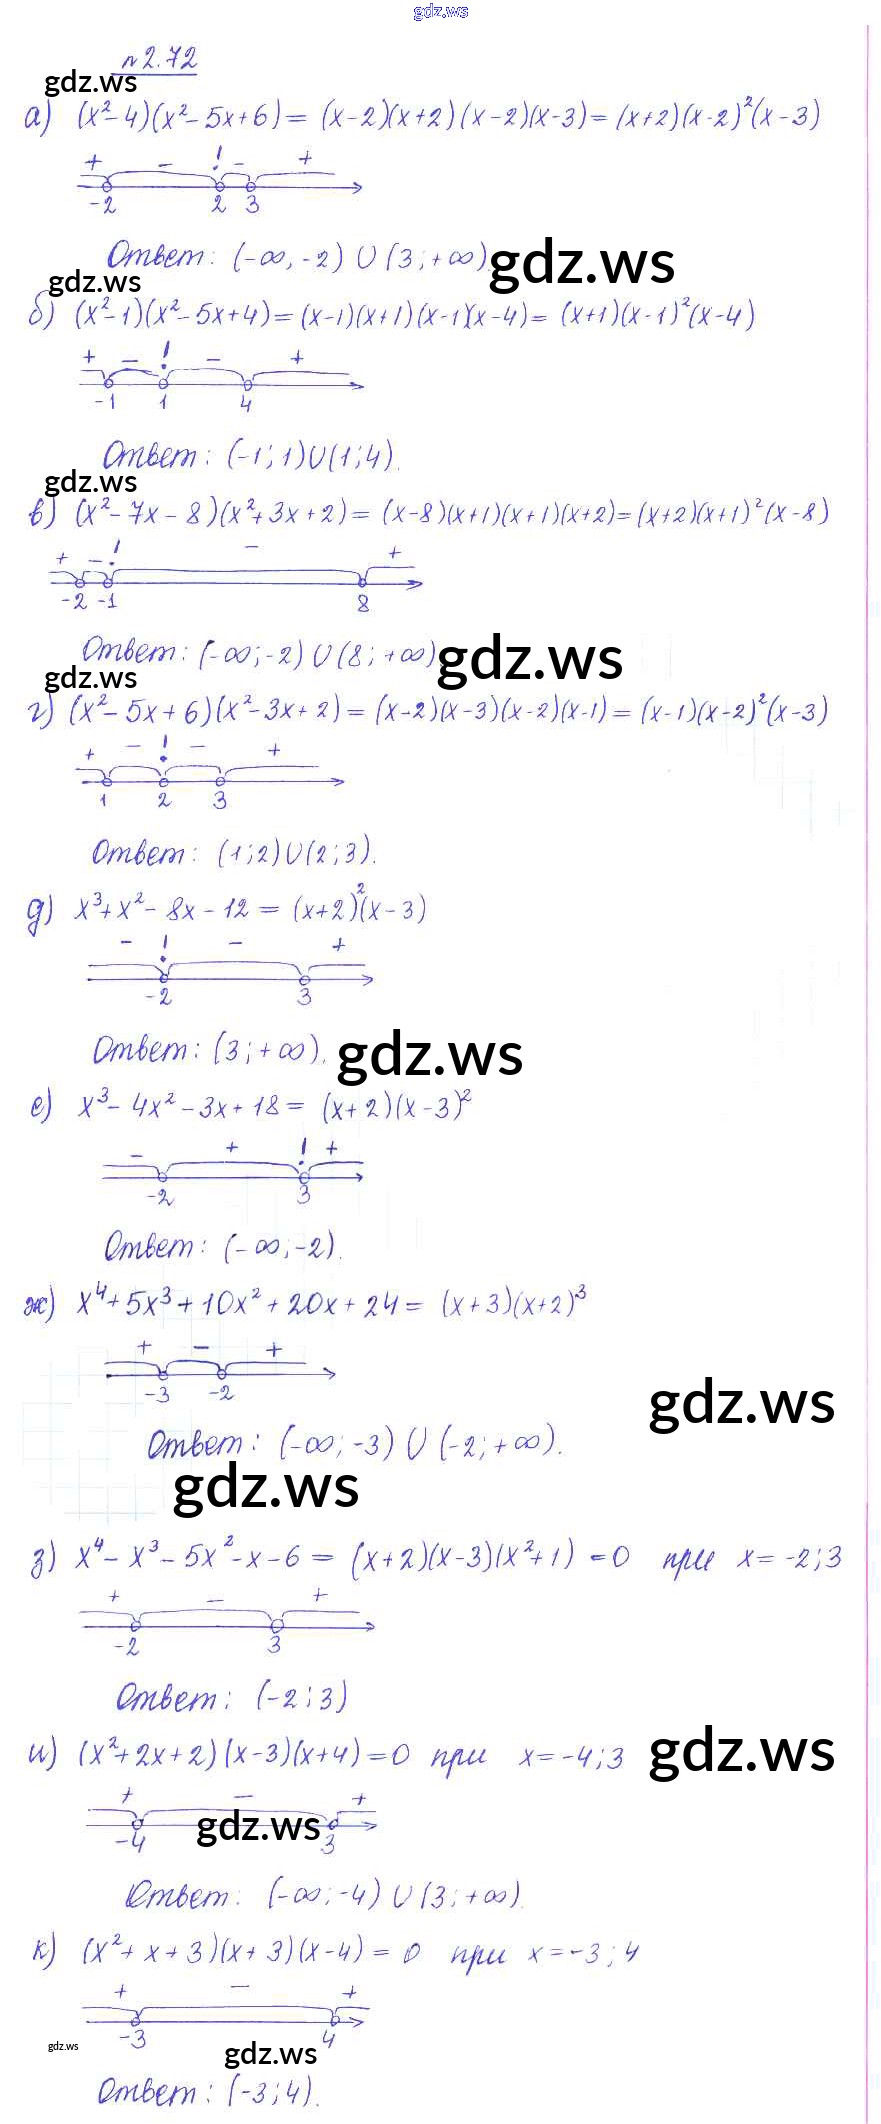 gdz.ws
№ 2.72
gdz.ws
а) (x²-4)(x²-5x+6) = (x-2)(x+2)(x-2)(x-3) = (x+2)(x-2)²(x-3)
+ - ! - +
-2 2 3
Ответ: (-∞, -2) ∪ (3; +∞). gdz.ws
gdz.ws
б) (x²-1)(x²-5x+4) = (x-1)(x+1)(x-1)(x-4) = (x+1)(x-1)²(x-4)
+ - ! - +
-1 1 4
Ответ: (-1; 1) ∪ (1; 4).
gdz.ws
в) (x²-7x-8)(x²+3x+2) = (x-8)(x+1)(x+1)(x+2) = (x+2)(x+1)²(x-8)
+ - ! - +
-2 -1 8
Ответ: (-∞; -2) ∪ (8; +∞) gdz.ws
gdz.ws
г) (x²-5x+6)(x²-3x+2) = (x-2)(x-3)(x-2)(x-1) = (x-1)(x-2)²(x-3)
+ - ! - +
1 2 3
Ответ: (1; 2) ∪ (2; 3).
д) x³+x²-8x-12 = (x+2)²(x-3)
- ! - +
-2 3
Ответ: (3; +∞). gdz.ws
е) x³-4x²-3x+18 = (x+2)(x-3)²
- + ! +
-2 3
Ответ: (-∞; -2).
ж) x⁴+5x³+10x²+20x+24 = (x+3)(x+2)³
+ - +
-3 -2
gdz.ws
Ответ: (-∞; -3) ∪ (-2; +∞).
gdz.ws
з) x⁴-x³-5x²-x-6 = (x+2)(x-3)(x²+1) = 0 при x = -2; 3
+ - +
-2 3
Ответ: (-2; 3)
и) (x²+2x+2)(x-3)(x+4) = 0 при x = -4; 3 gdz.ws
+ - +
-4 gdz.ws 3
Ответ: (-∞; -4) ∪ (3; +∞).
к) (x²+x+3)(x+3)(x-4) = 0 при x = -3; 4
+ - +
-3 4
gdz.ws gdz.ws
Ответ: (-3; 4).